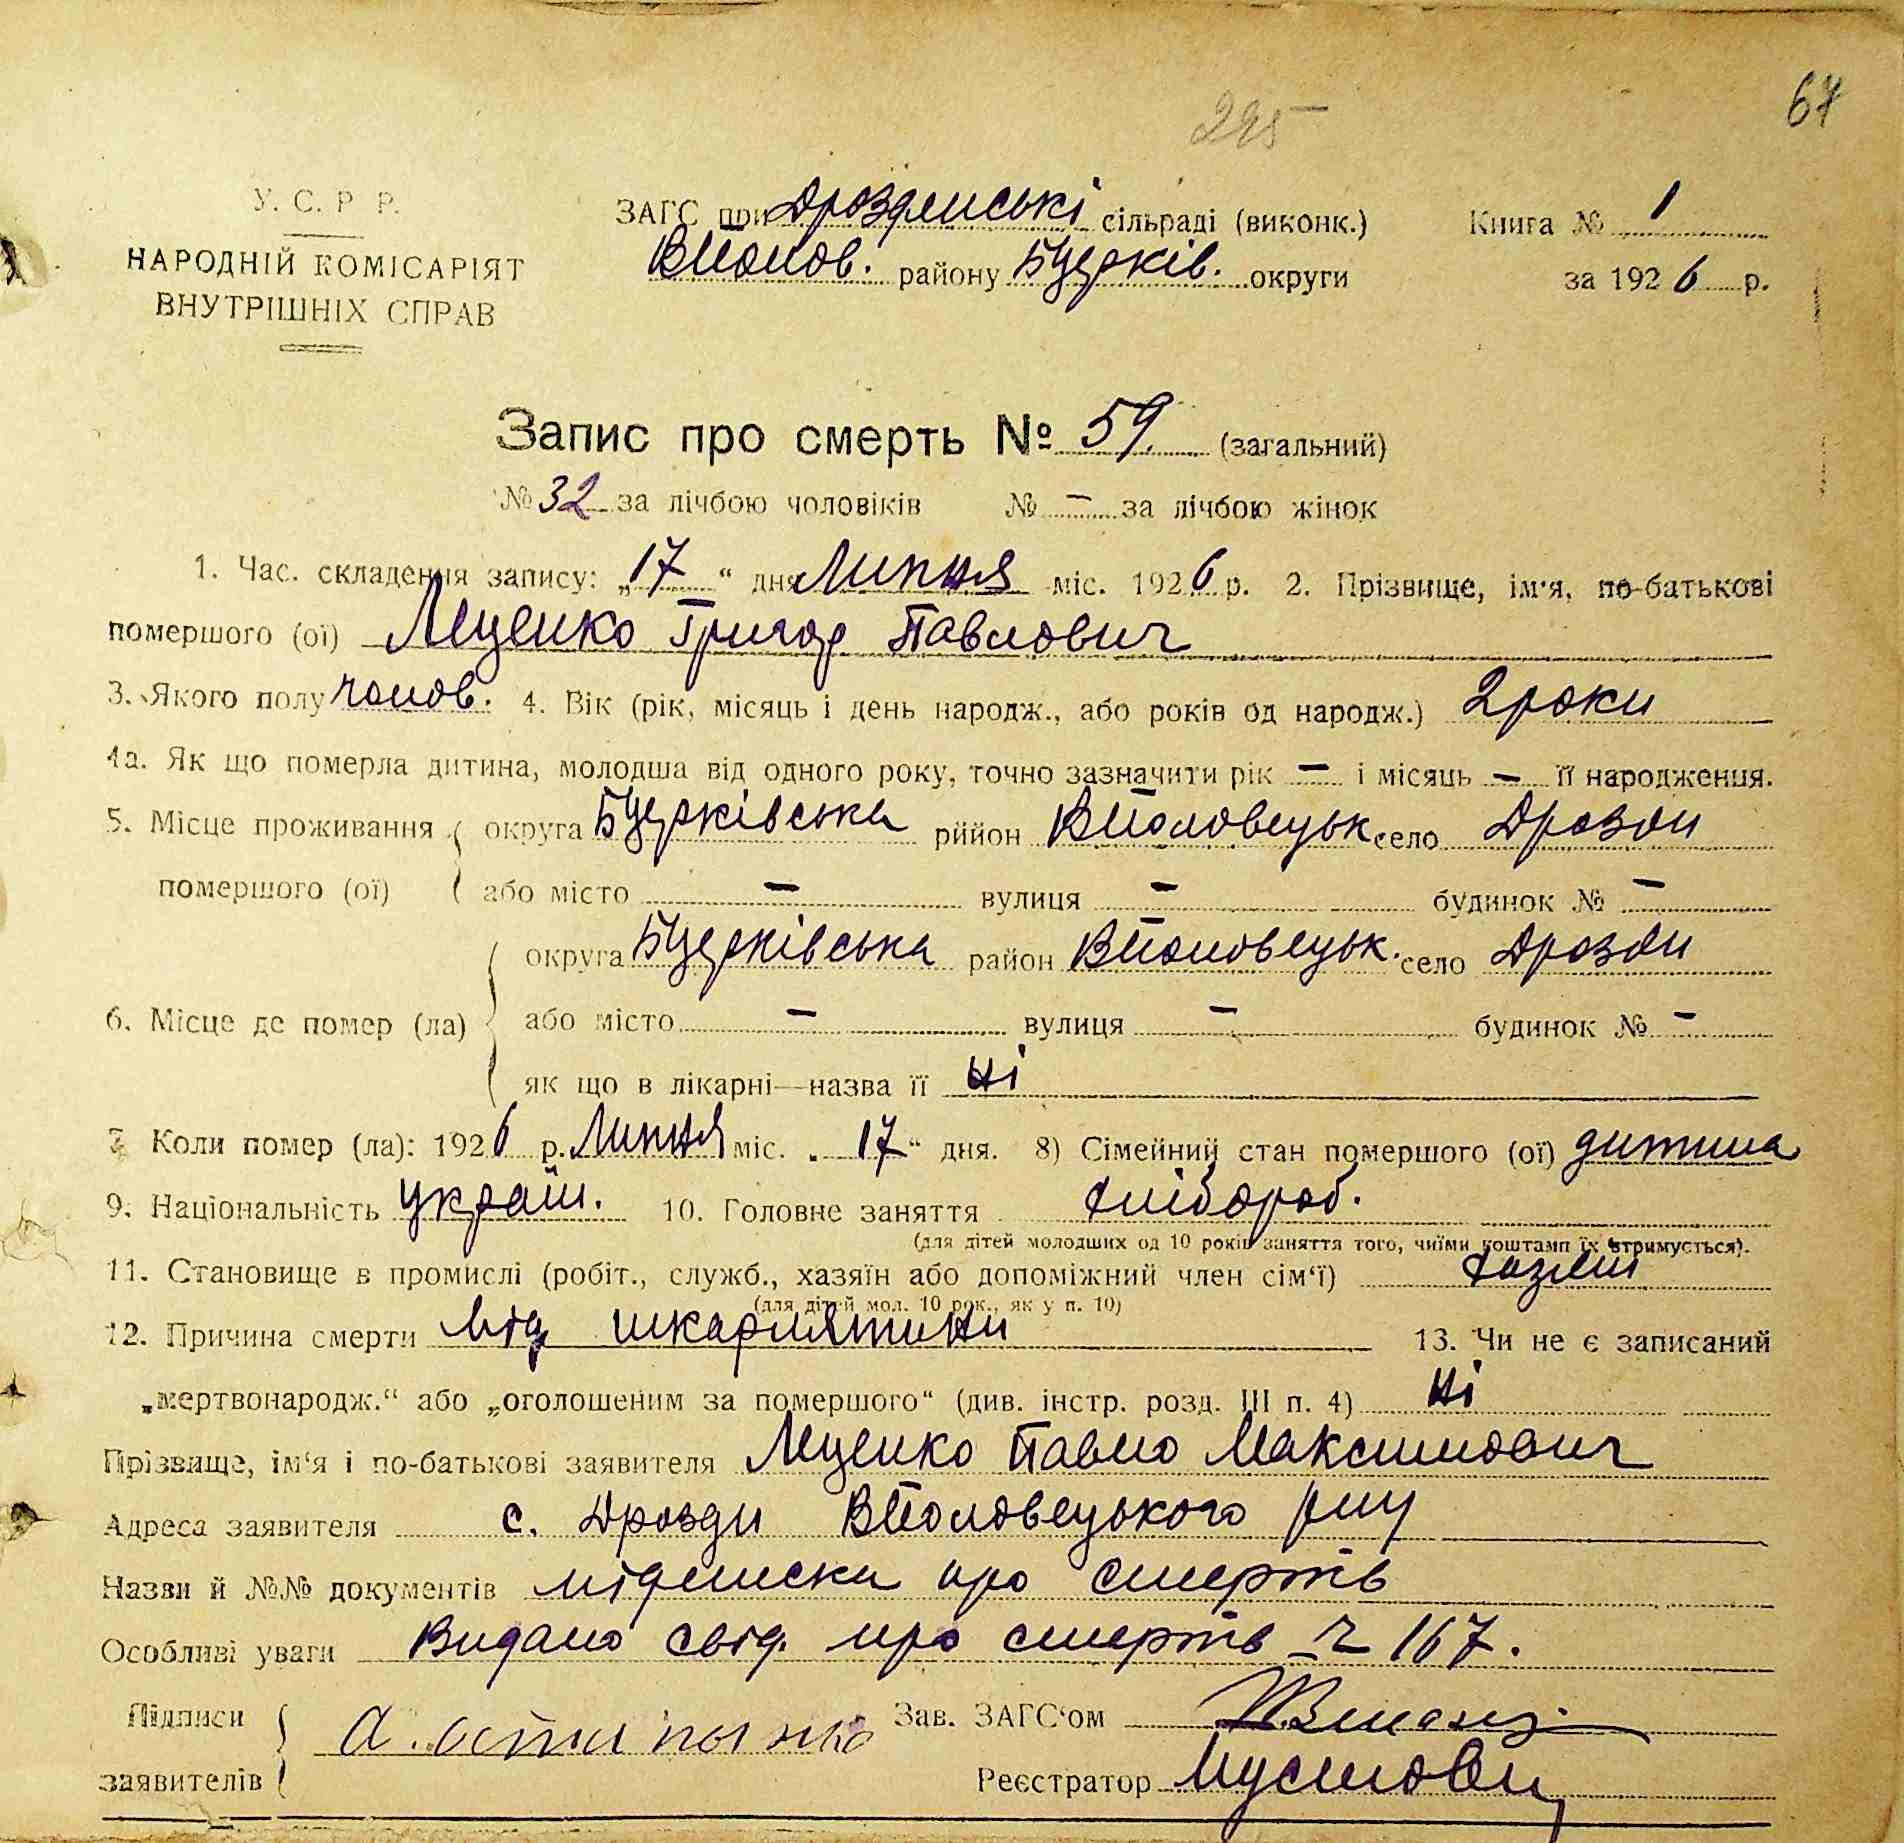 67
225
У. С. Р. Р.
НАРОДНІЙ КОМІСАРІЯТ
ВНУТРІШНІХ СПРАВ
ЗАГС при Дроздянські сільраді (виконк.)
ВПолов. району Бцерків. округи
Книга № 1
за 1926 р.
Запис про смерть № 59. (загальний)
№ 32 за лічбою чоловіків № — за лічбою жінок
1. Час. складення запису: „17“ дня Липня міс. 1926 р. 2. Прізвище, ім'я, по-батькові
помершого (ої) Леценко Григор Павлович
3. Якого полу чолов. 4. Вік (рік, місяць і день народж., або років од народж.) 2 роки
4а. Як що померла дитина, молодша від одного року, точно зазначити рік — і місяць — її народження.
5. Місце проживання округа Бцерківська рийон ВПоловецьк село Дрозди
помершого (ої) або місто — вулиця — будинок № —
округа Бцерківська район ВПоловецьк. село Дрозди
6. Місце де помер (ла) або місто — вулиця — будинок № —
як що в лікарні—назва її ні
7 Коли помер (ла): 1926 р. Липня міс. „17“ дня. 8) Сімейний стан помершого (ої) дитина
9. Національність україн. 10. Головне заняття хлібороб.
(для дітей молодших од 10 років заняття того, чиїми коштами їх втримується).
11. Становище в промислі (робіт., служб., хазяїн або допоміжний член сім'ї) хазяїн
(для дітей мол. 10 рок., як у п. 10)
12. Причина смерти від шкарлятини 13. Чи не є записаний
„мертвонародж.“ або „оголошеним за помершого“ (див. інстр. розд. III п. 4) ні
Прізвище, ім'я і по-батькові заявителя Леценко Павло Максимович
Адреса заявителя с. Дрозди ВПоловецького рну
Назви й №№ документів про смерть
Особливі уваги Видано свід. про смерть ч 167.
Підписи
заявителів
Зав. ЗАГС'ом
Реєстратор